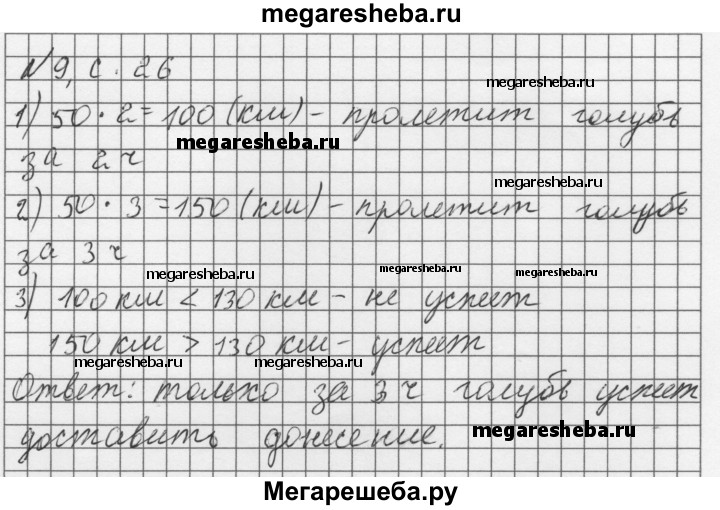 megaresheba.ru
№9, с. 26
megaresheba.ru
1) 50 · 2 = 100 (км) - пролетит голубь
megaresheba.ru
за 2 ч
megaresheba.ru
2) 50 · 3 = 150 (км) - пролетит голубь
за 3 ч
megaresheba.ru megaresheba.ru megaresheba.ru
3) 100 км < 130 км - не успеет
150 км > 130 км - успеет
megaresheba.ru megaresheba.ru megaresheba.ru
Ответ: только за 3 ч голубь успеет
доставить донесение.
megaresheba.ru
Мегарешеба.ру